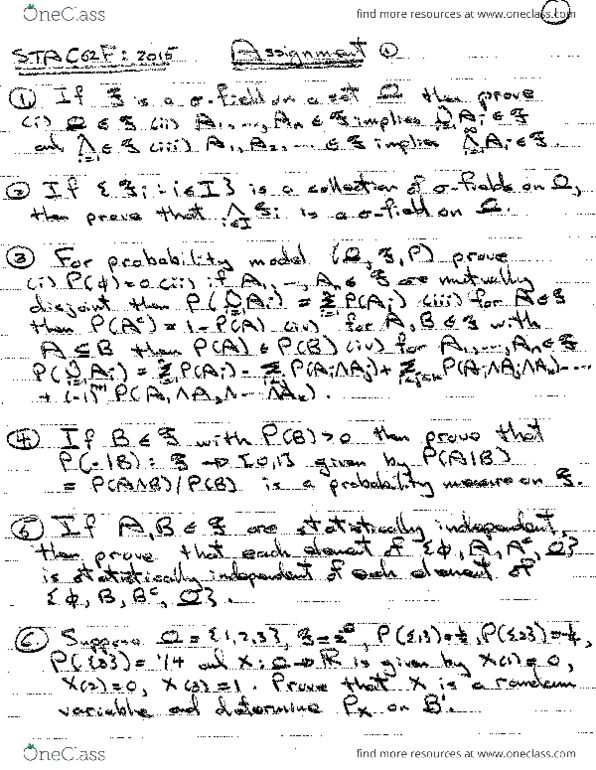 OneClass
find more resources at www.oneclass.com
1
STAC62F: 2015 Assignment 1
① If 𝓕 is a σ-field on a set Ω then prove
(i) Ω ∈ 𝓕 (ii) A₁, ..., Aₙ ∈ 𝓕 implies ⋃ᵢ₌₁ⁿ Aᵢ ∈ 𝓕
and ⋂ᵢ₌₁ⁿ ∈ 𝓕 (iii) A₁, A₂, ... ∈ 𝓕 implies ⋂ᵢ₌₁^∞ Aᵢ ∈ 𝓕.
② If {𝓕ᵢ : i ∈ I} is a collection of σ-fields on Ω,
then prove that ⋂_{i∈I} 𝓕ᵢ is a σ-field on Ω.
③ For probability model (Ω, 𝓕, P) prove
(i) P(φ) = 0 (ii) if A₁, ..., Aₙ ∈ 𝓕 are mutually
disjoint then P(⋃ᵢ₌₁ⁿ Aᵢ) = Σᵢ₌₁ⁿ P(Aᵢ) (iii) for A ∈ 𝓕
then P(Aᶜ) = 1 - P(A) (iv) for A, B ∈ 𝓕 with
A ⊆ B then P(A) ≤ P(B) (iv) for A₁, ..., Aₙ ∈ 𝓕
P(⋃ᵢ₌₁ⁿ Aᵢ) = Σᵢ P(Aᵢ) - Σ_{i<j} P(Aᵢ∩Aⱼ) + Σ_{i<j<k} P(Aᵢ∩Aⱼ∩Aₖ) - ...
+ (-1)ⁿ⁺¹ P(A₁∩A₂∩ ... ∩Aₙ).
④ If B ∈ 𝓕 with P(B) > 0 then prove that
P(·|B) : 𝓕 → [0,1] given by P(A|B)
= P(A∩B)/P(B) is a probability measure on 𝓕.
⑤ If A, B ∈ 𝓕 are statistically independent,
then prove that each element of {φ, A, Aᶜ, Ω}
is statistically independent of each element of
{φ, B, Bᶜ, Ω}.
⑥ Suppose Ω = {1,2,3}, 𝓕 = 2^Ω, P({1}) = ½, P({2}) = ¼,
P({3}) = 1/4 and X: Ω → ℝ is given by X(1) = 0,
X(2) = 0, X(3) = 1. Prove that X is a random
variable and determine Pₓ on B¹.
OneClass
find more resources at www.oneclass.com